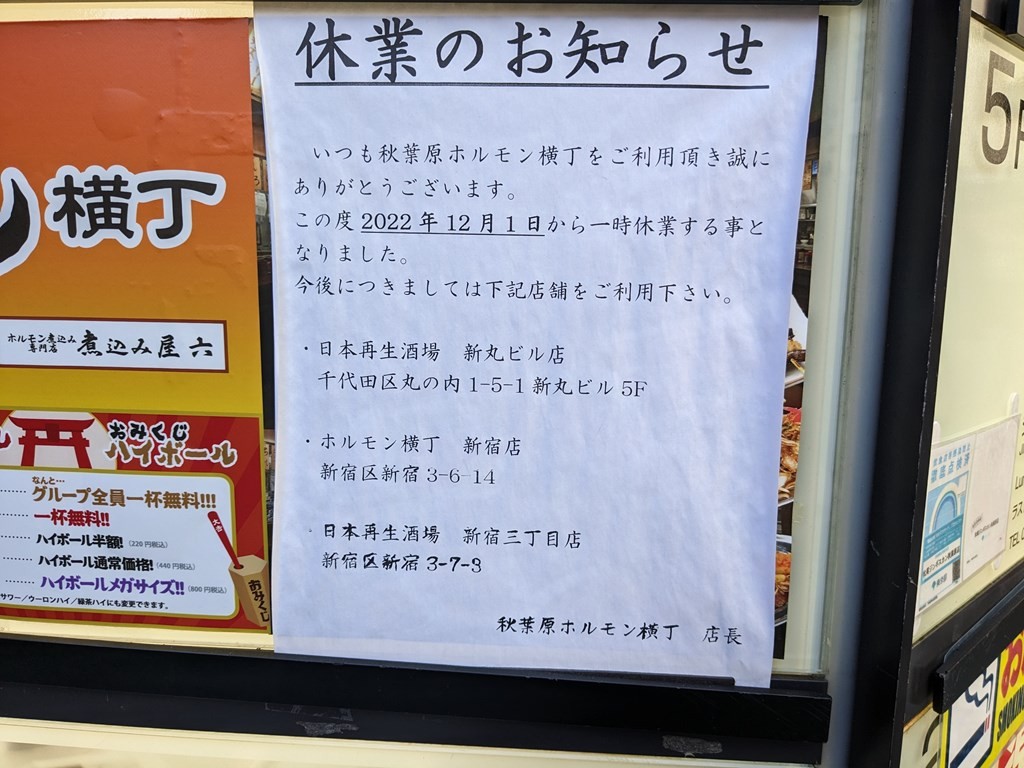 休業のお知らせ
いつも秋葉原ホルモン横丁をご利用頂き誠に
ありがとうございます。
この度 2022 年 12 月 1 日から一時休業する事と
なりました。
今後につきましては下記店舗をご利用下さい。
・日本再生酒場　新丸ビル店
千代田区丸の内 1-5-1 新丸ビル 5F
・ホルモン横丁　新宿店
新宿区新宿 3-6-14
・日本再生酒場　新宿三丁目店
新宿区新宿 3-7-3
秋葉原ホルモン横丁　店長
横丁
ホルモン煮込み
専門店
煮込み屋 六
おみくじ
ハイボール
なんと…
グループ全員一杯無料!!!
一杯無料!!
ハイボール半額! (220円税込)
ハイボール通常価格! (440円税込)
ハイボールメガサイズ!! (800円税込)
サワー／ウーロンハイ／緑茶ハイにも変更できます。
大吉
おみくじ
5F
徹底点検済
TEL